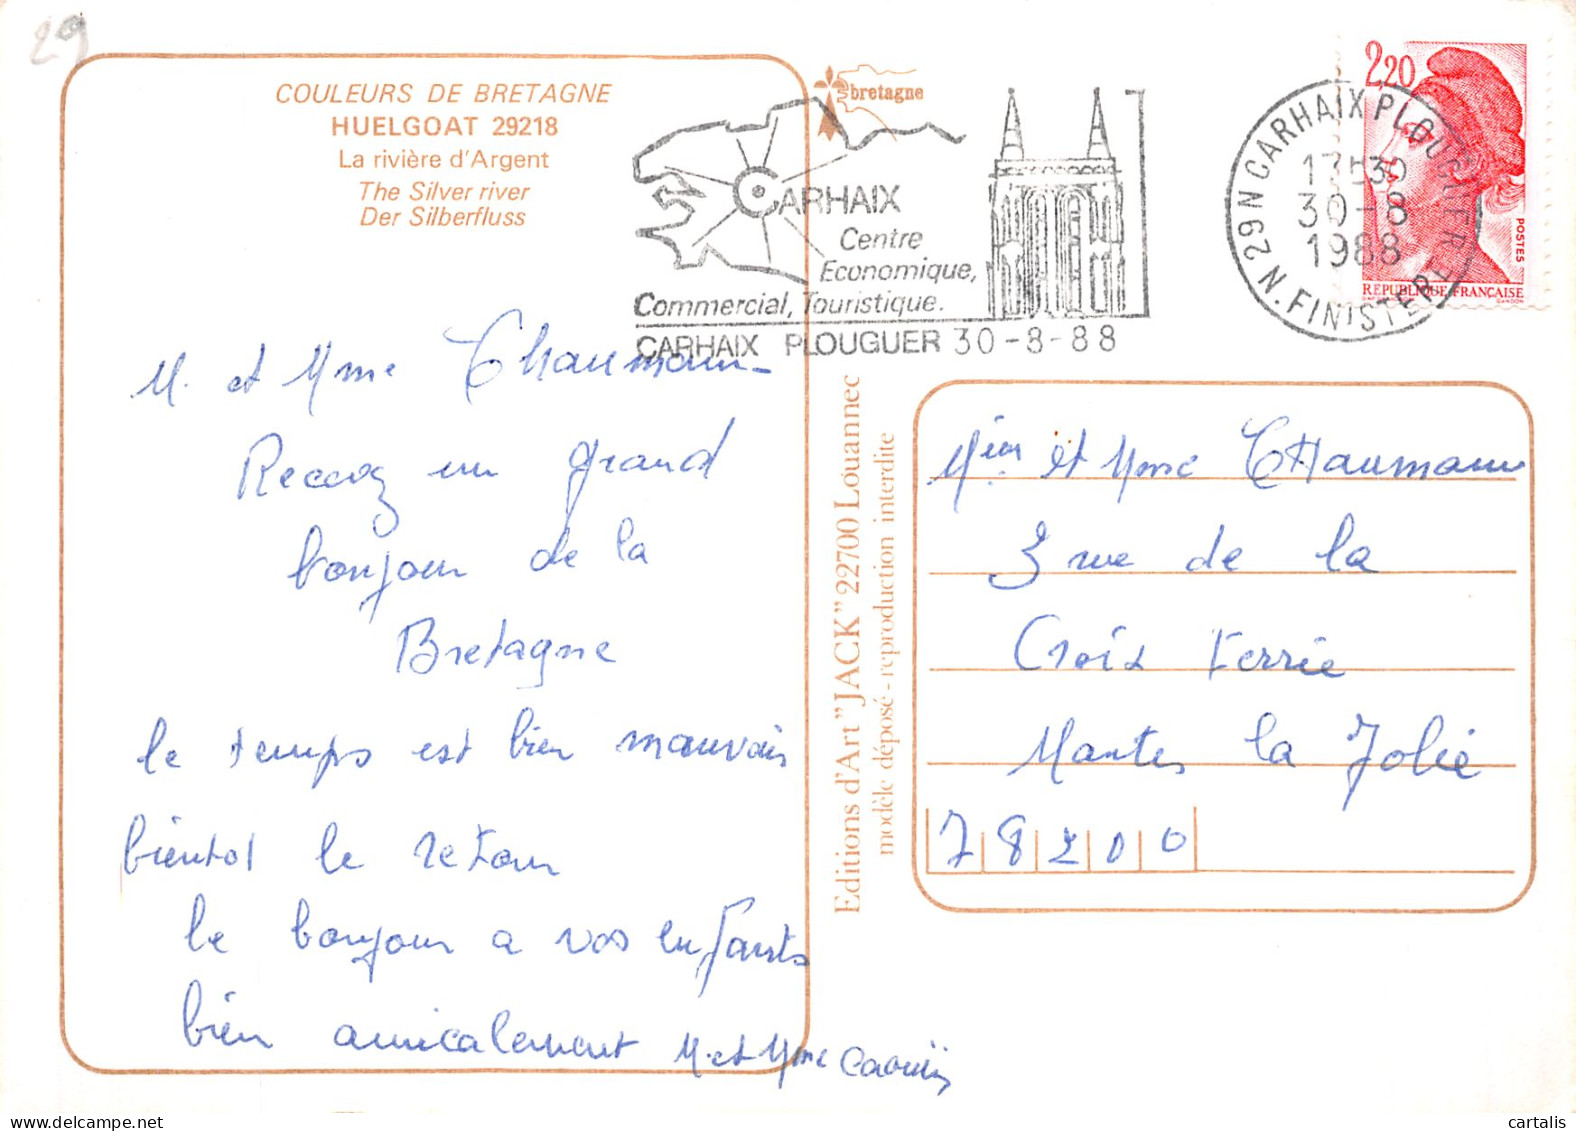 29
COULEURS DE BRETAGNE
HUELGOAT 29218
La rivière d'Argent
The Silver river
Der Silberfluss
bretagne
CARHAIX
Centre
Economique,
Commercial, Touristique.
CARHAIX PLOUGUER 30-8-88
29 N CARHAIX PLOUGUER
N. FINISTERE
17h30
30-8
1988
2,20
POSTES
REPUBLIQUE FRANÇAISE
M. et Mme Chaumann
Recevez un grand
bonjour de la
Bretagne
le temps est bien mauvais
bientot le retour
le bonjour a vos enfants
bien amicalement M. et Mme
Editions d'Art "JACK" 22700 Louannec
modèle déposé - reproduction interdite
et Mme CHaumann
3 rue de la
Croix Ferrée
Mantes la Jolie
78200
cartalis